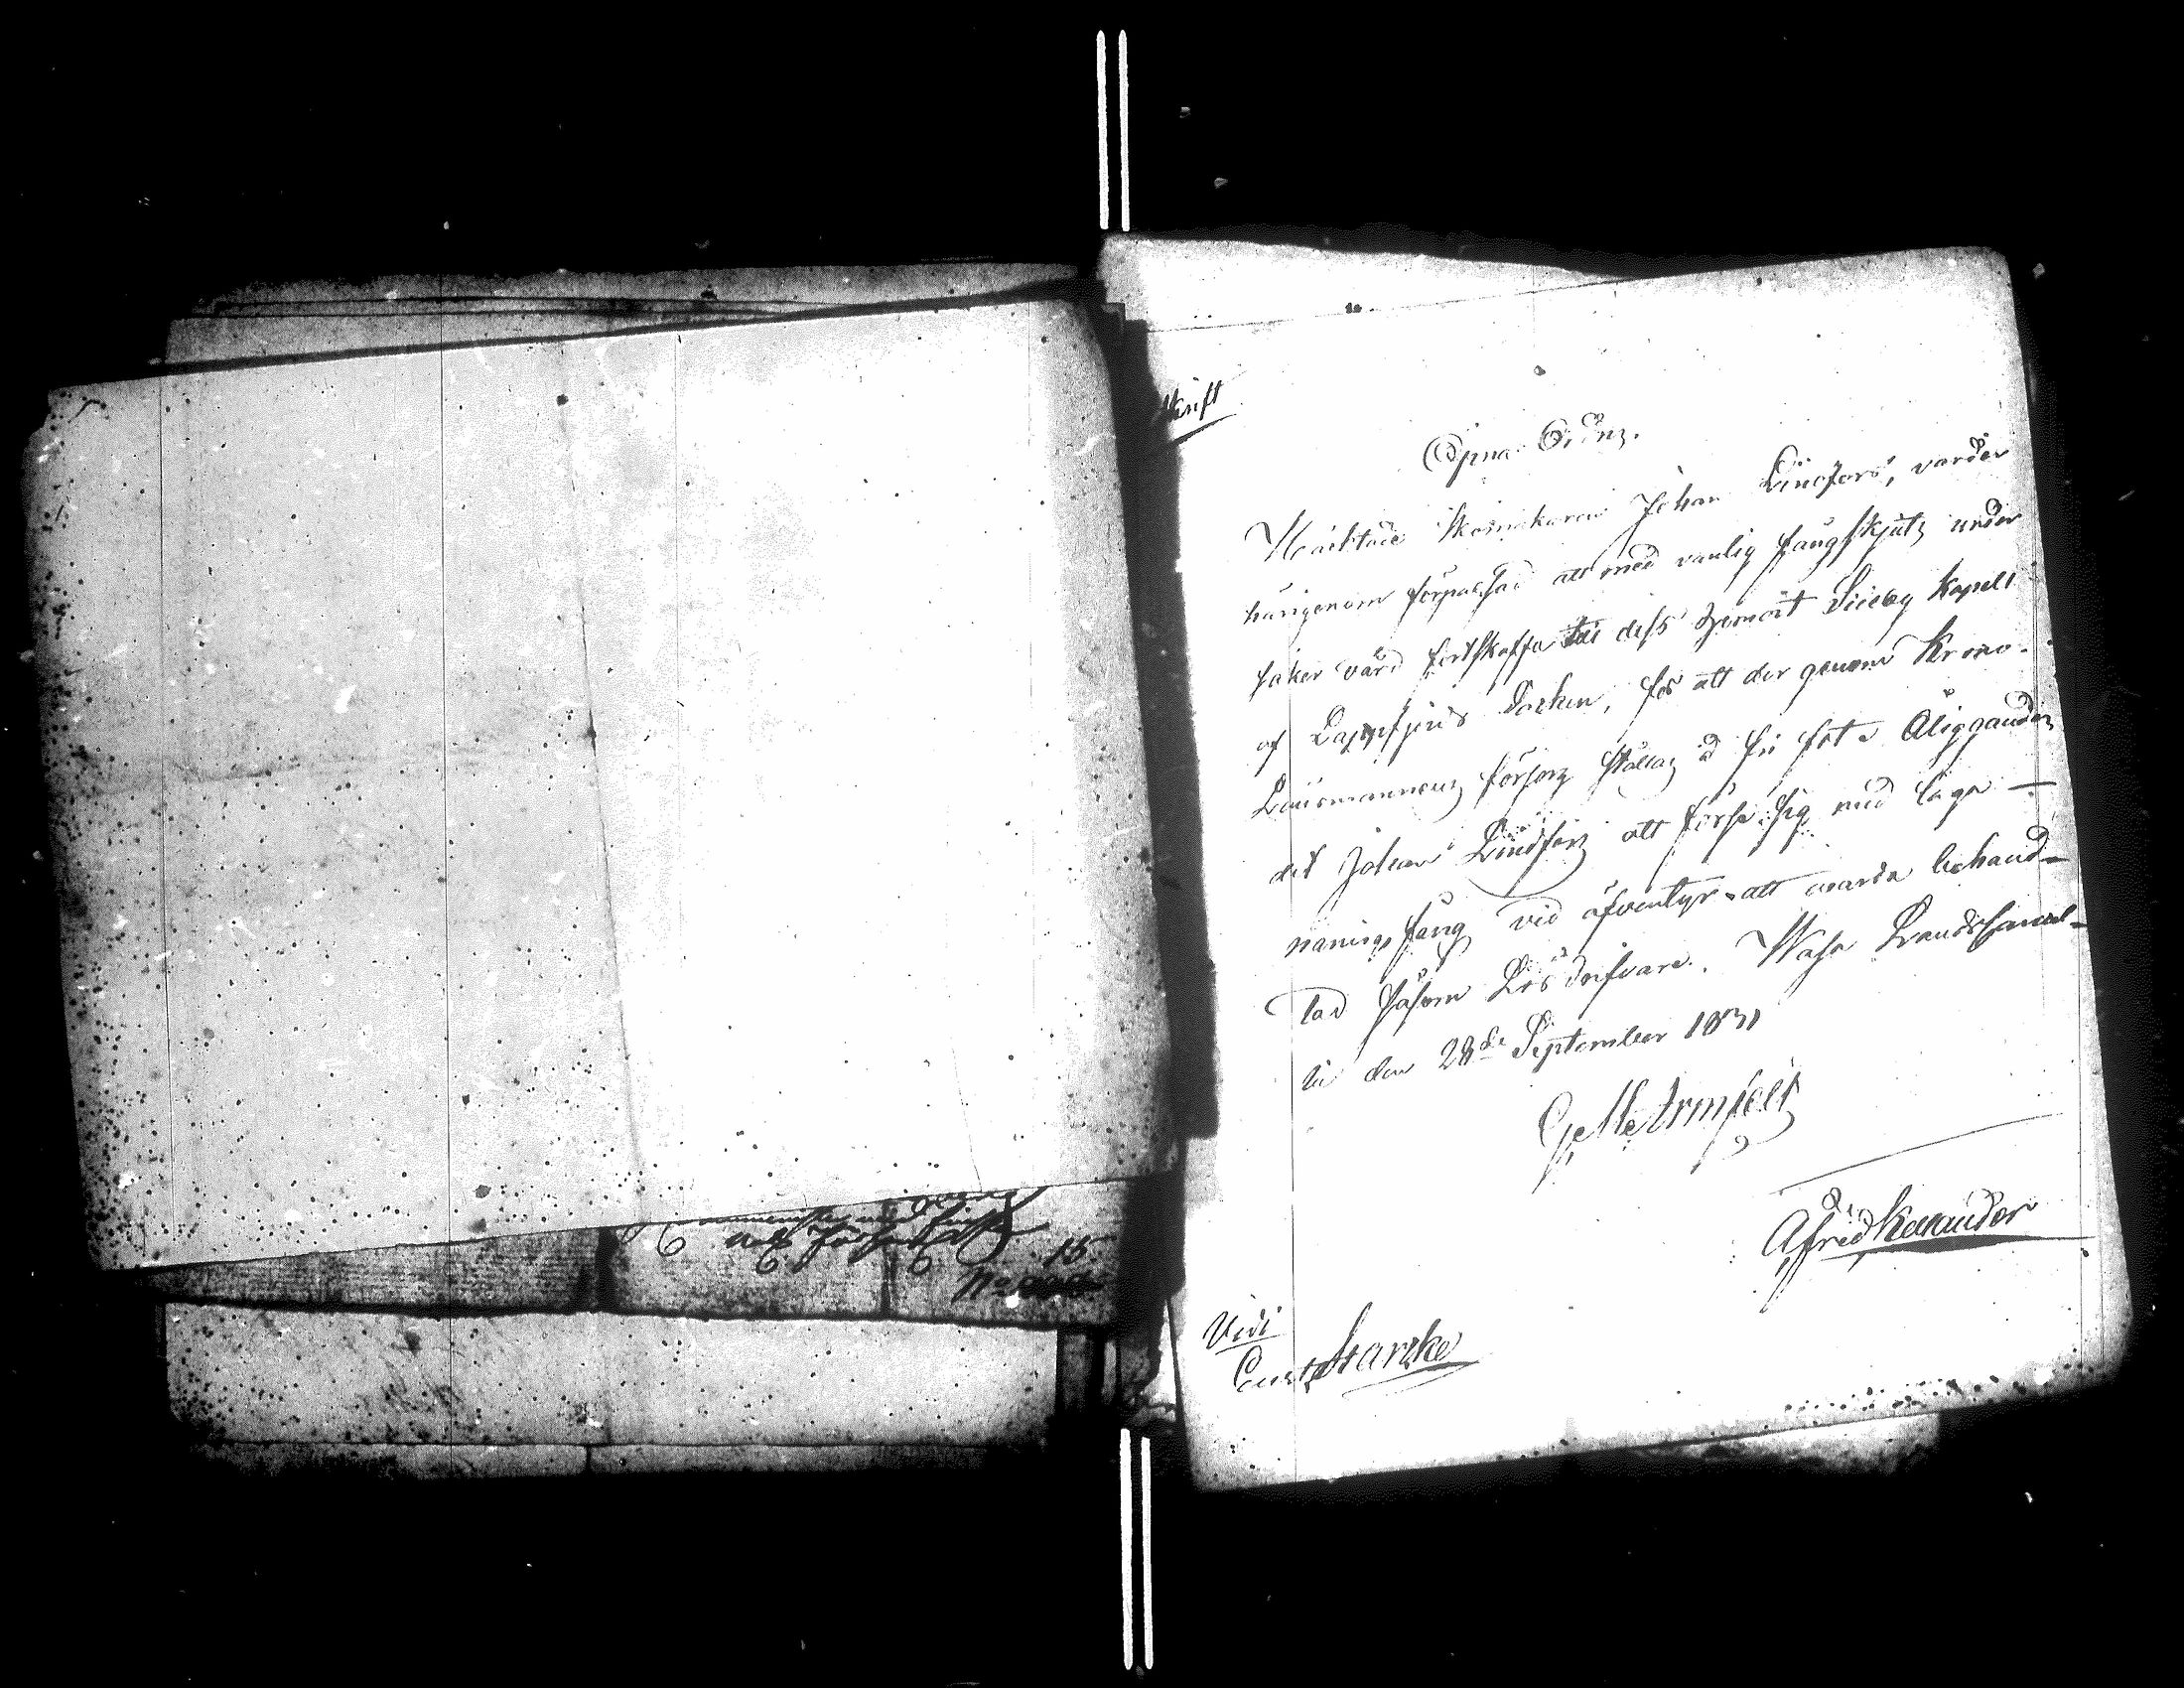 skrift
Öpna Ordnz.
Häktade Skomakaren Johan Lindfors, varder
härigenom förpassad att med vanlig fångskjuts under
säker vård fortskaffas till dess hemort Sideby Kapell
af Lappfjerds Socken, för att der genom Krono-
Länsmannens försorg ställas å fri fot, Åliggandes
det Johan Lindfors att förse sig med laga
näringsfång vid äfventyr att warda behand-
lad såsom Lösdrifvare. Wasa Landskansel-
li den 28de September 1831
G M Armfelt
Alfred Kerrander
Vidi
Starcke
15